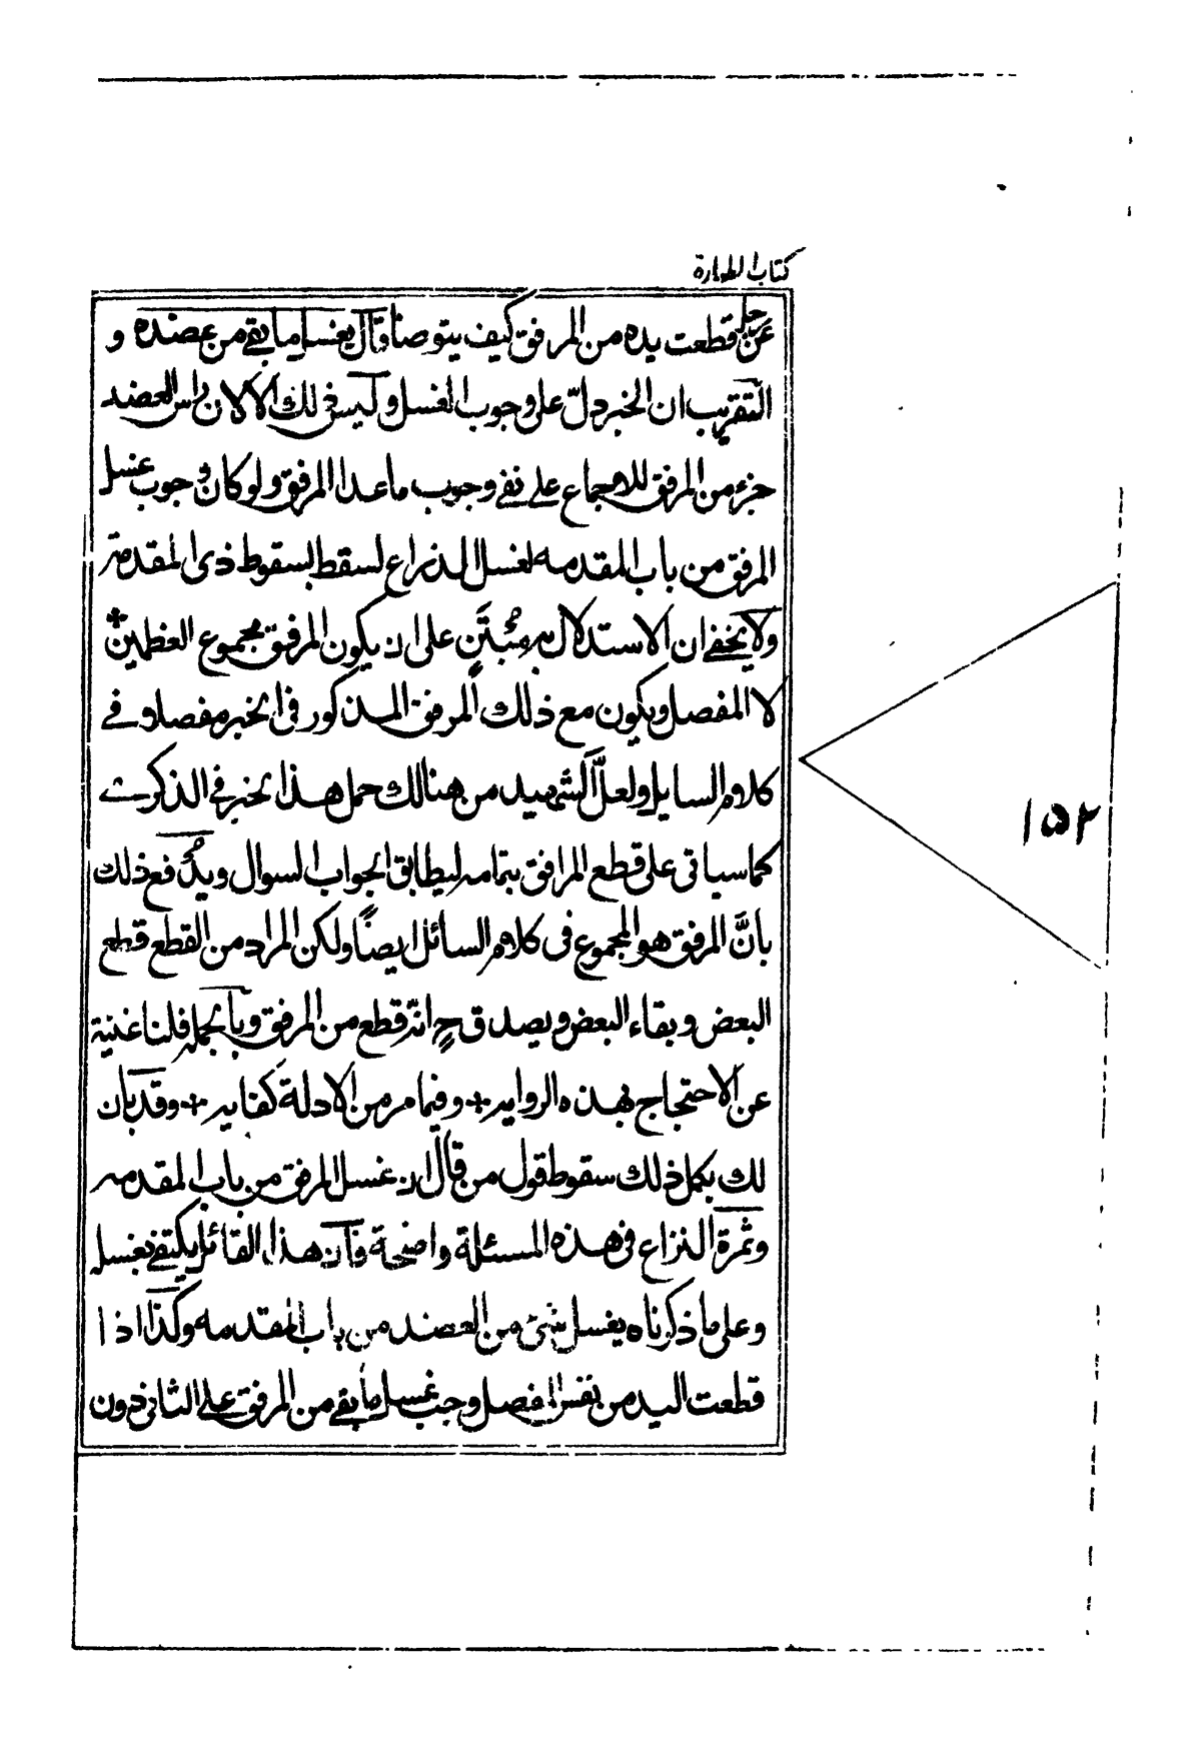 كتاب الطهارة
عن رجل قطعت يده من المرفق كيف يتوضأ قال يغسل ما بقي من عضده و
التقريب ان الخبر دلّ على وجوب الغسل وليس ذلك الا لان راس العضد
جزء من المرفق للاجماع على نفي وجوب ما عدا المرفق ولو كان وجوب غسل
المرفق من باب المقدمه لغسل الذراع لسقط بسقوط ذى المقدمة
ولا يخفى ان الاستدلال به مُبتَنٍ على ان يكون المرفق مجموع العظمين
لا المفصل ويكون مع ذلك المرفق المذكور في الخبر مفصلا و في
كلام السايل ولعلَّ الشهيد من هنالك حمل هذا الخبر في الذكرى
كما سياتى على قطع المرافق بتمامه ليطابق الجواب السوال ويُدفع ذلك
بانَّ المرفق هو المجموع فى كلام السائل ايضًا ولكن المراد من القطع قطع
البعض وبقاء البعض ويصدق ح انه قطع من المرفق وبالجملة فلنا غنية
عن الاحتجاج بهذه الرواية وفيما مر من الادلة كفاية وقد بان
لك بكل ذلك سقوط قول من قال ان غسل المرفق من باب المقدمه
وثمرة النزاع فى هذه المسئلة واضحة فان هذا القائل يكتفي بغسل
وعلى ما ذكرناه يغسل شئ من العضد من باب المقدمه وكذا اذا
قطعت اليد من نفس المفصل وجب غسل ما بقي من المرفق على الثانى دون
١٥٢